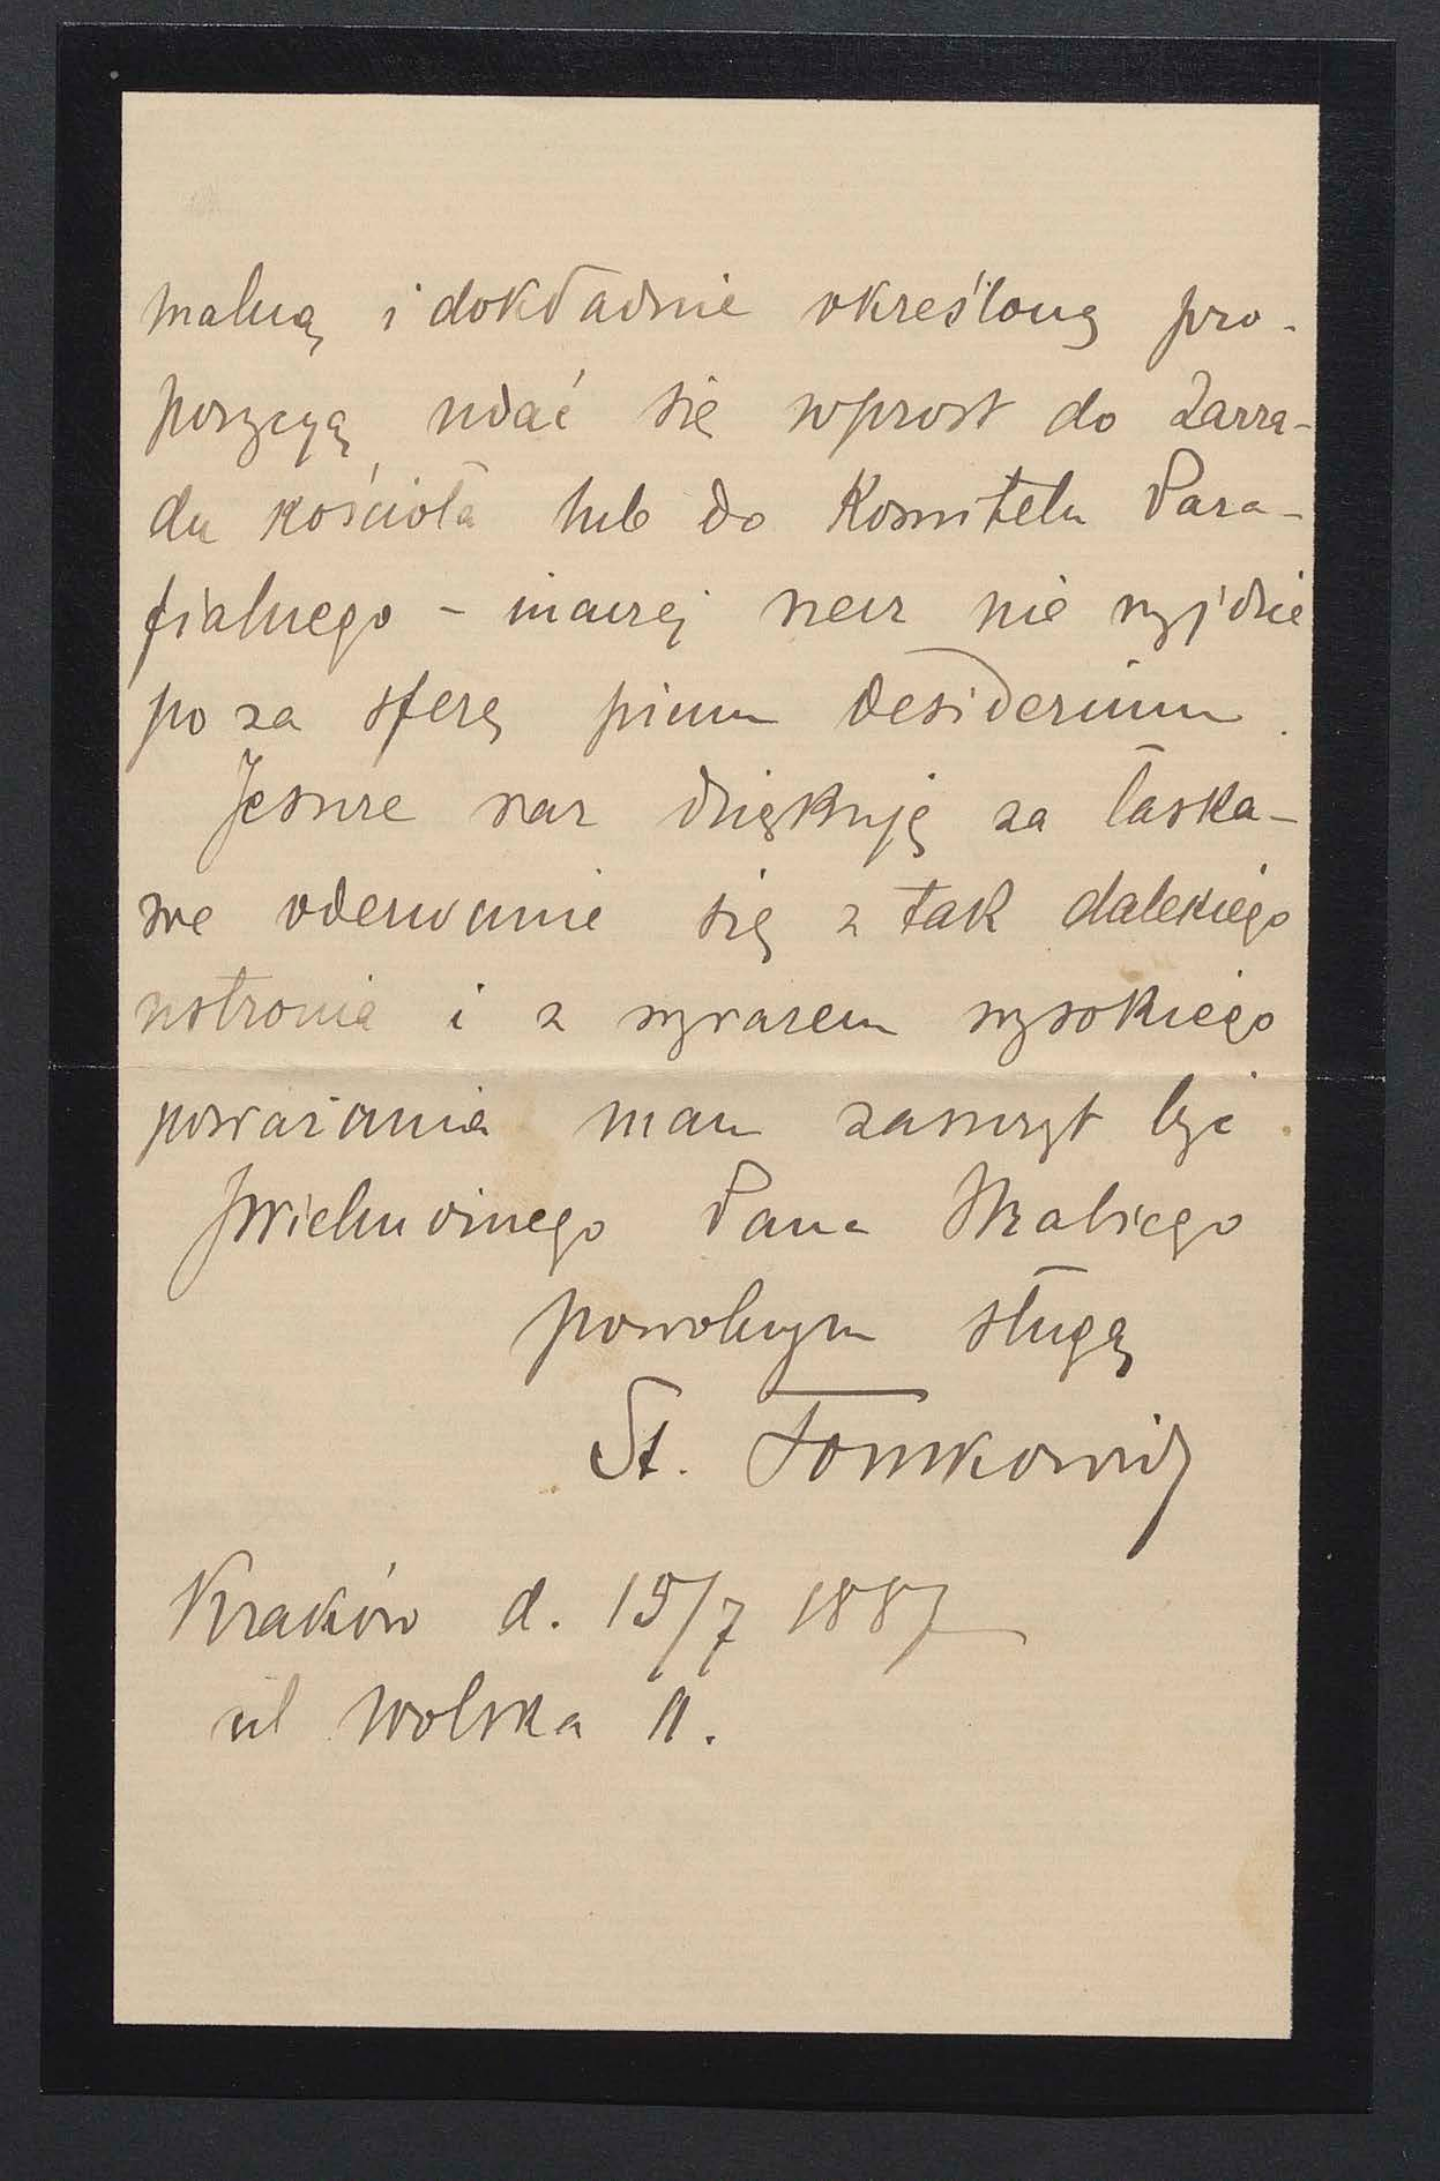 malną i dokładnie określoną pro-
pozycyą udać się wprost do Zarzą-
du kościoła lub do Komitetu Para-
fialnego – inaczej rzecz nie wyjdzie
po za sferę pium desiderium.
Jeszcze raz dziękuję za łaska-
we oderwanie się z tak dalekiego
ustronia i z wyrazem wysokiego
poważania mam zaszczyt być
JWielmożnego Pana Hrabiego
powolnym sługą
St. Tomkowicz
Kraków d. 15/7 1887
ul Wolska 11.